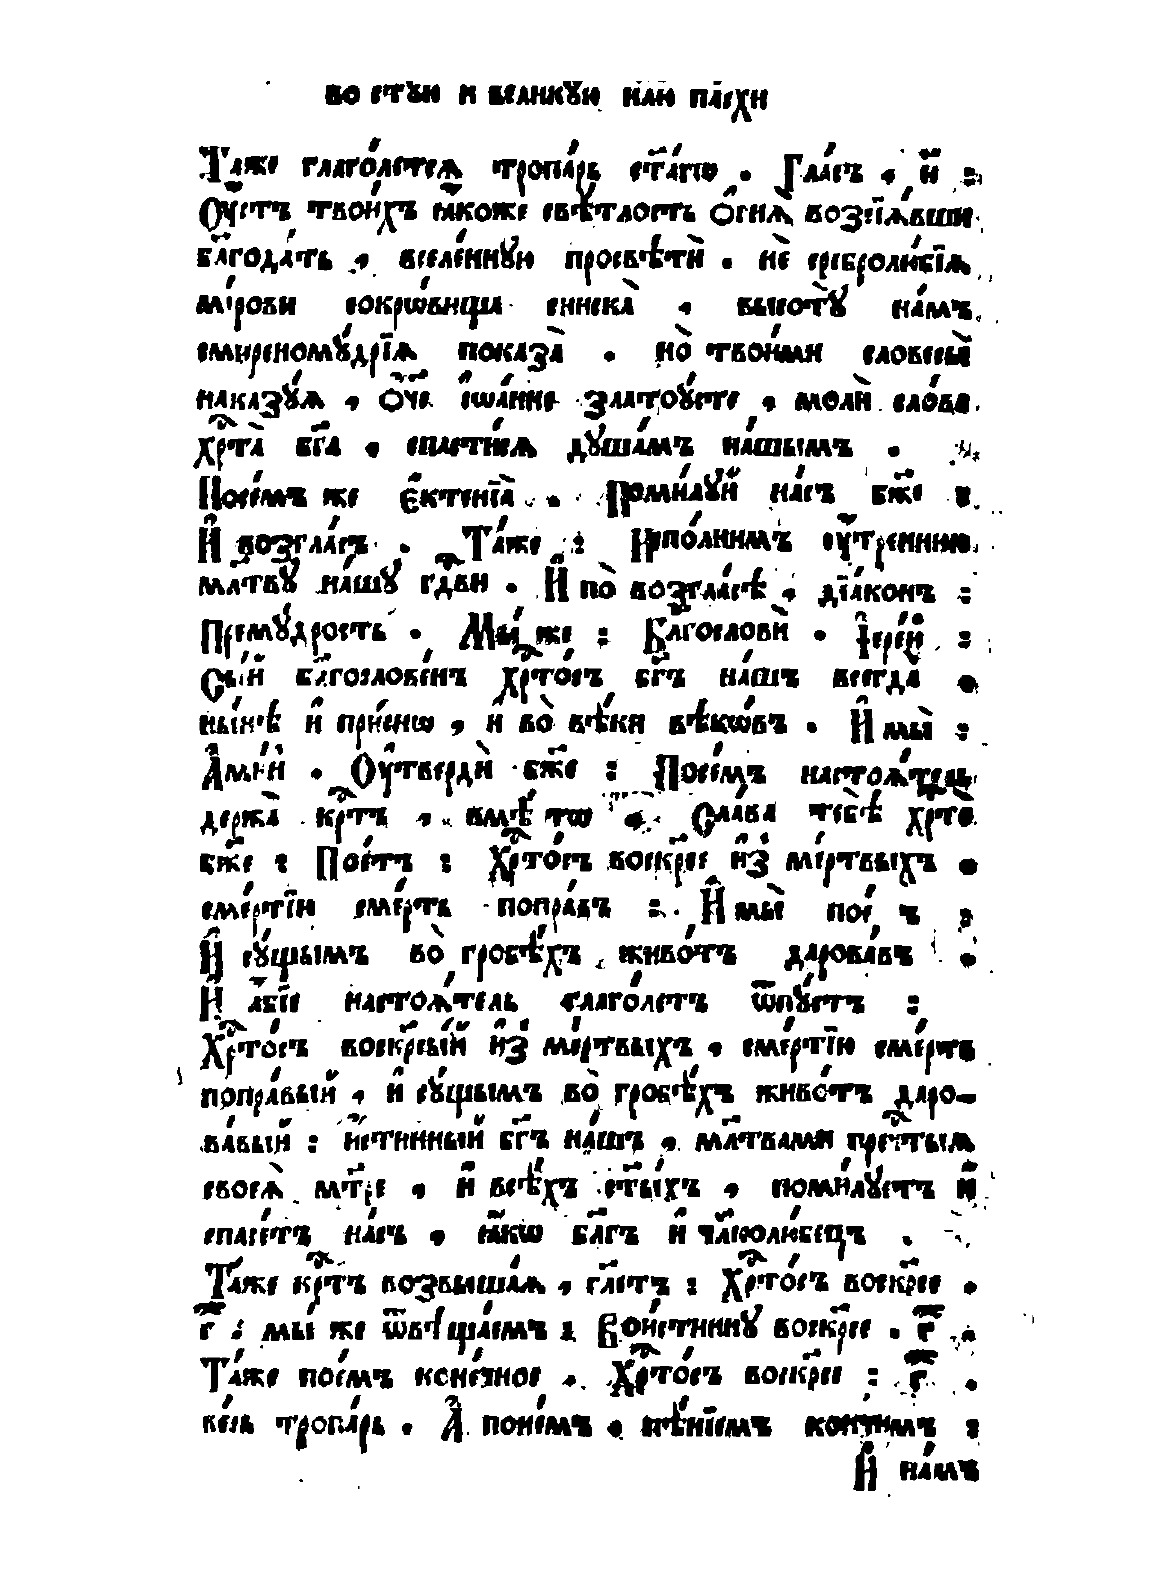 во ст҃ꙋю и великꙋю нл҃ю па́схи
Та́же глаго́летсѧ тропа́рь ст҃а́гѡ . Гла́съ , и҃ :
Оу҆́стъ твои́хъ ꙗ҆́коже свѣ́тлость ѻ҆гнѧ̀ возсїѧ́вши
бл҃года́ть , вселе́ннꙋю просвѣтѝ . нѐ сребролю́бїѧ
мі́рови сокрѡ́вища сниска̀ , высотꙋ̀ на́мъ
смиреномꙋ́дрїѧ показа̀ . но̀ твои́ми словесы̀
наказꙋ́ѧ , ѻ҆́ч҃е і҆ѡа́нне златоꙋ́сте , молѝ сло́ва
хрⷭ҇та̀ бг҃а , спасти́сѧ дꙋша́мъ на́шымъ .
Пое́мъ же є҆ктенїа̀ . Поми́лꙋй на́съ бж҃е :
И҆ возгла́съ . Та́же : И҆спо́лнимъ оу҆́тренюю
мл҃твꙋ на́шꙋ гдⷭ҇ви . И҆ по̀ возгла́сѣ , дїа́конъ :
Премꙋ́дрость . Мы́ же : Бл҃гословѝ . І҆ере́й :
Сы́й бл҃гослове́нъ хрⷭ҇то́съ бг҃ъ на́шъ всегда̀ .
ны́нѣ и҆ при́снѡ , и҆ во̀ вѣ́ки вѣкѡ́въ . И҆ мы̀ :
А҆ми́нь . Оу҆твердѝ бж҃е : Пое́мъ настоѧ́тель
держа̀ крⷭ҇тъ , вмѣ́стѡ Сла́ва тебѣ̀ хрⷭ҇тѐ
бж҃е : Пое́тъ : Хрⷭ҇то́съ воскр҃се и҆з̾ ме́ртвыхъ .
сме́ртїю сме́рть попра́въ : И҆ мы̀ пое́мъ :
И҆ сꙋ́щымъ во̀ гробѣ́хъ живо́тъ дарова́въ .
И҆ а҆́бїе настоѧ́тель глаго́летъ ѿпꙋ́стъ :
Хрⷭ҇то́съ воскр҃сы́й и҆з̾ ме́ртвыхъ , сме́ртїю сме́рть
попра́вый , и҆ сꙋ́щымъ во̀ гробѣ́хъ живо́тъ даро-
ва́вый : и҆́стинный бг҃ъ на́шъ , мл҃твами пречⷭ҇тыѧ
своеѧ̀ мт҃ре , и҆ всѣ́хъ ст҃ы́хъ , поми́лꙋетъ и҆
спасе́тъ на́съ , ꙗ҆́кѡ бл҃гъ и҆ чл҃колю́бецъ .
Та́же крⷭ҇тъ возвыша́ѧ , гл҃етъ : Хрⷭ҇то́съ воскр҃се .
г҃ : мы́ же ѿвѣща́емъ : Вои́стиннꙋ воскр҃се . г҃ .
Та́же пое́мъ коне́чное . Хрⷭ҇то́съ воскр҃се : г҃ .
ве́сь тропа́рь . А҆ пое́мъ , пѣ́нїемъ
И҆ на́мъ